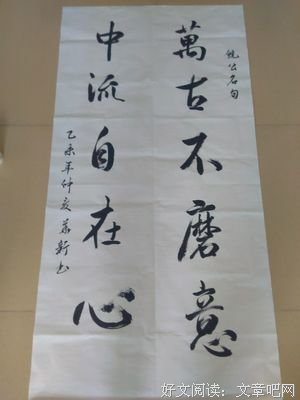 饶公名句
萬古不磨意
中流自在心
乙未年仲夏
好文阅读:文章吧网